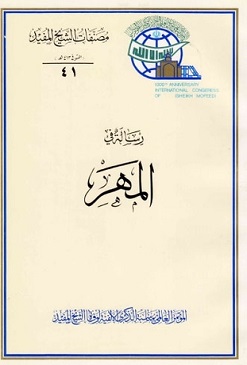 مصنفات الشيخ المفيد
٤١
لا إله إلا الله
1000TH ANNIVERSARY
INTERNATIONAL CONGRESS
OF SHEIKH MOFEED
رسالة في
المهر
المؤتمر العالمي بمناسبة الذكرى الألفية لوفاة الشيخ المفيد